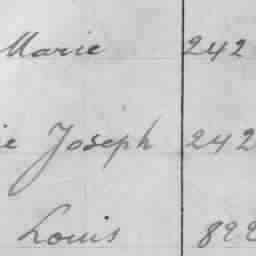 Marie 242
ie Joseph 242
Louis 822